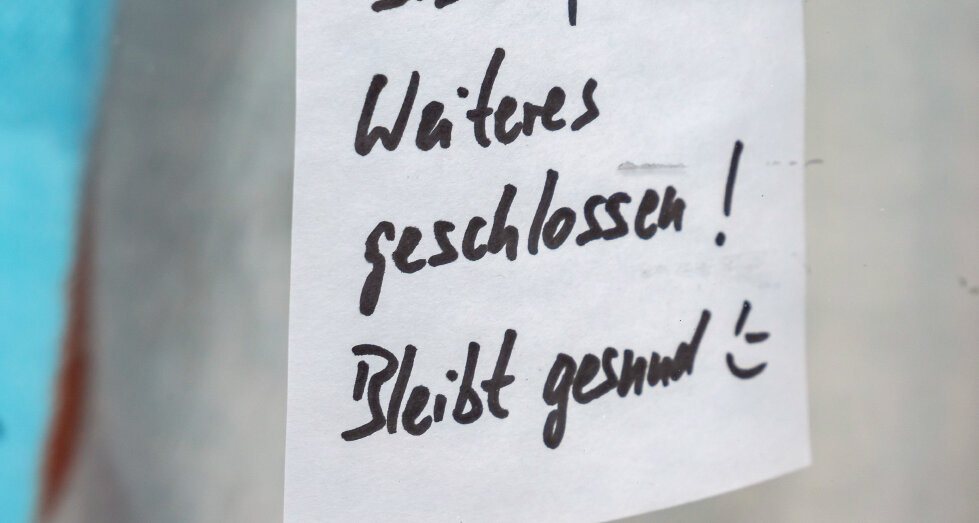 Weiteres
geschlossen!
Bleibt gesund